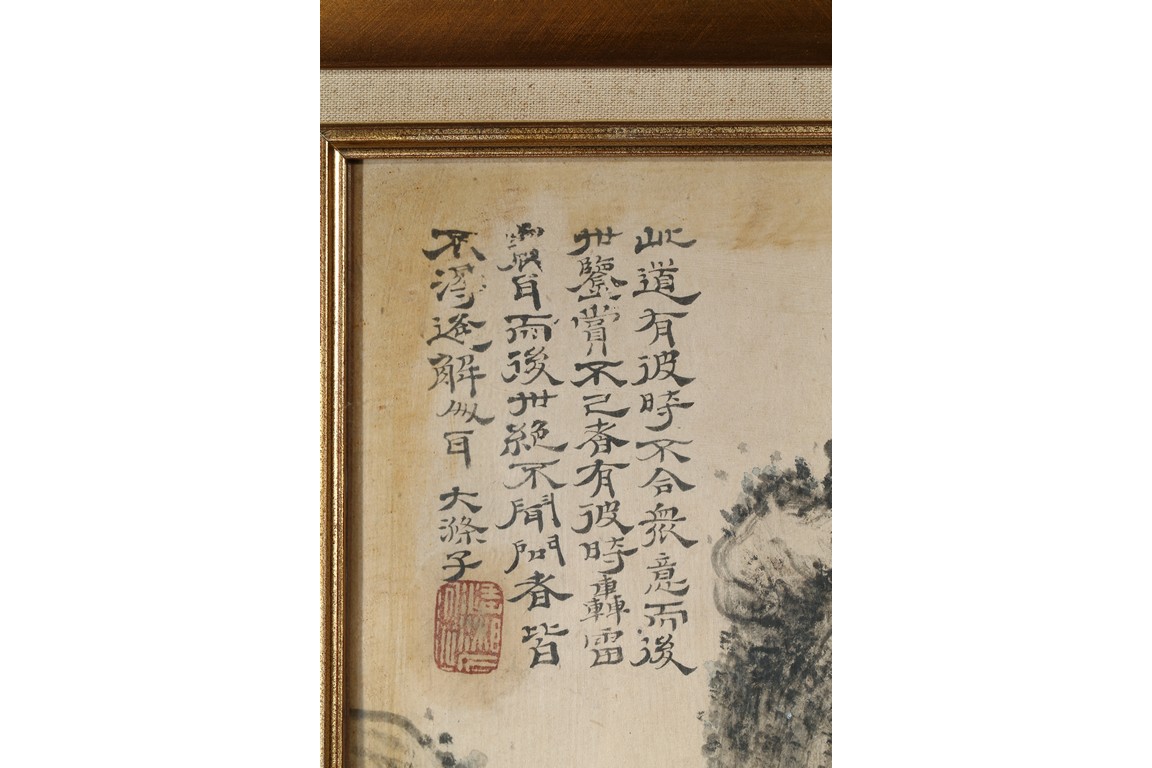 此道有彼時不合衆意而後
世鑒賞不已者有彼時轟雷
震耳而後世絕不聞問者皆
不得逢解耳 大滌子